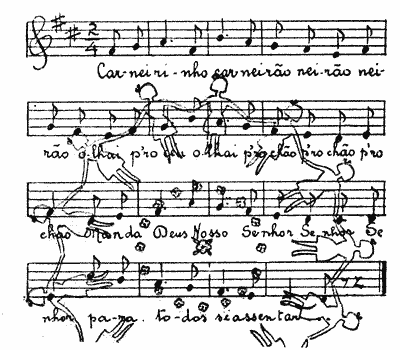 2/4
Car-nei-ri-nho car neirão nei-rão nei-
rão olhai p'ro céu olhai p'ro chão p'ro chão p'ro
chão Manda Deus Nosso Senhor Senhor Se
nhor pa-ra. to-dos se assentar